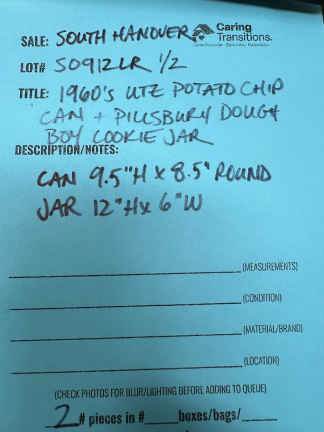 SALE: SOUTH HANOVER Caring Transitions.
LOT# S0912LR 1/2
TITLE: 1960's UTZ POTATO CHIP
CAN + PILLSBURY DOUGH
BOY COOKIE JAR
DESCRIPTION/NOTES:
CAN 9.5"H x 8.5" ROUND
JAR 12"H x 6"W
(MEASUREMENTS)
(CONDITION)
(MATERIAL/BRAND)
(LOCATION)
(CHECK PHOTOS FOR BLUR/LIGHTING BEFORE ADDING TO QUEUE)
2 # pieces in #____boxes/bags/____